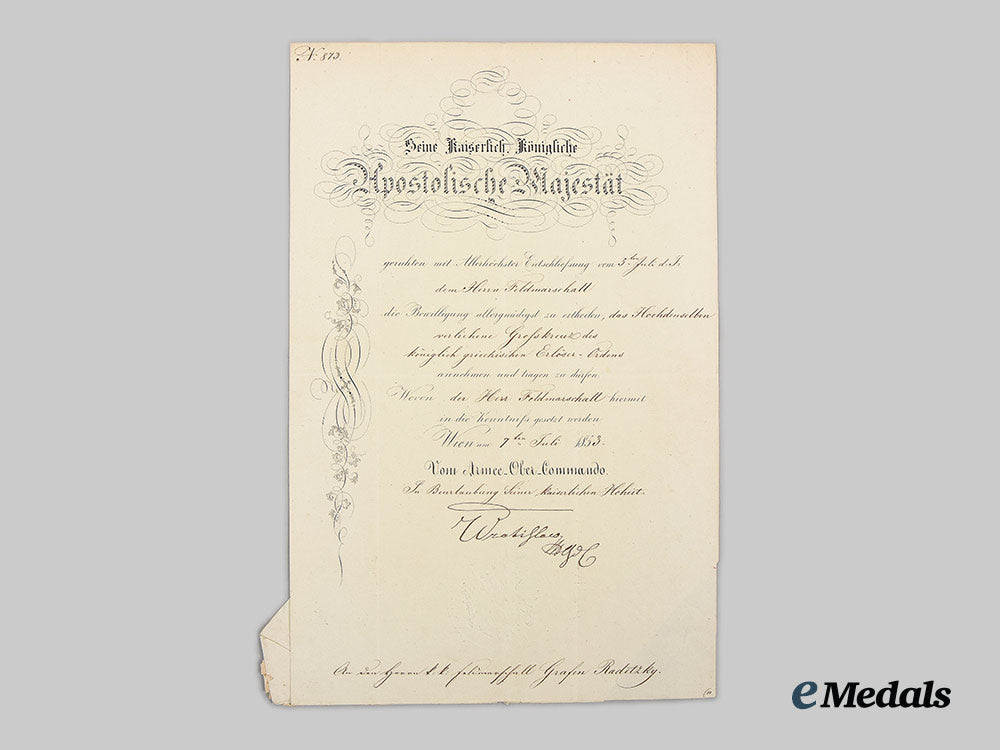 N: 873.
Seine Kaiserlich, Königliche
Apostolische Majestät
geruhten mit Allerhöchster Entschließung vom 5ten Juli d. J.
dem Herrn Feldmarschall
die Bewilligung allergnädigst zu ertheilen, das Hochdenselben
verliehene Großkreuz des
königlich griechischen Erlöser-Ordens
annehmen und tragen zu dürfen.
Wovon der Herr Feldmarschall hiermit
in die Kenntniß gesetzt werden
Wien am 7ten Juli 1853.
Vom Armee-Ober-Commando.
In Beurlaubung Seiner kaiserlichen Hoheit.
Wratislaw
GdC
An den Herrn k. k. Feldmarschall Grafen Raditzky.
eMedals